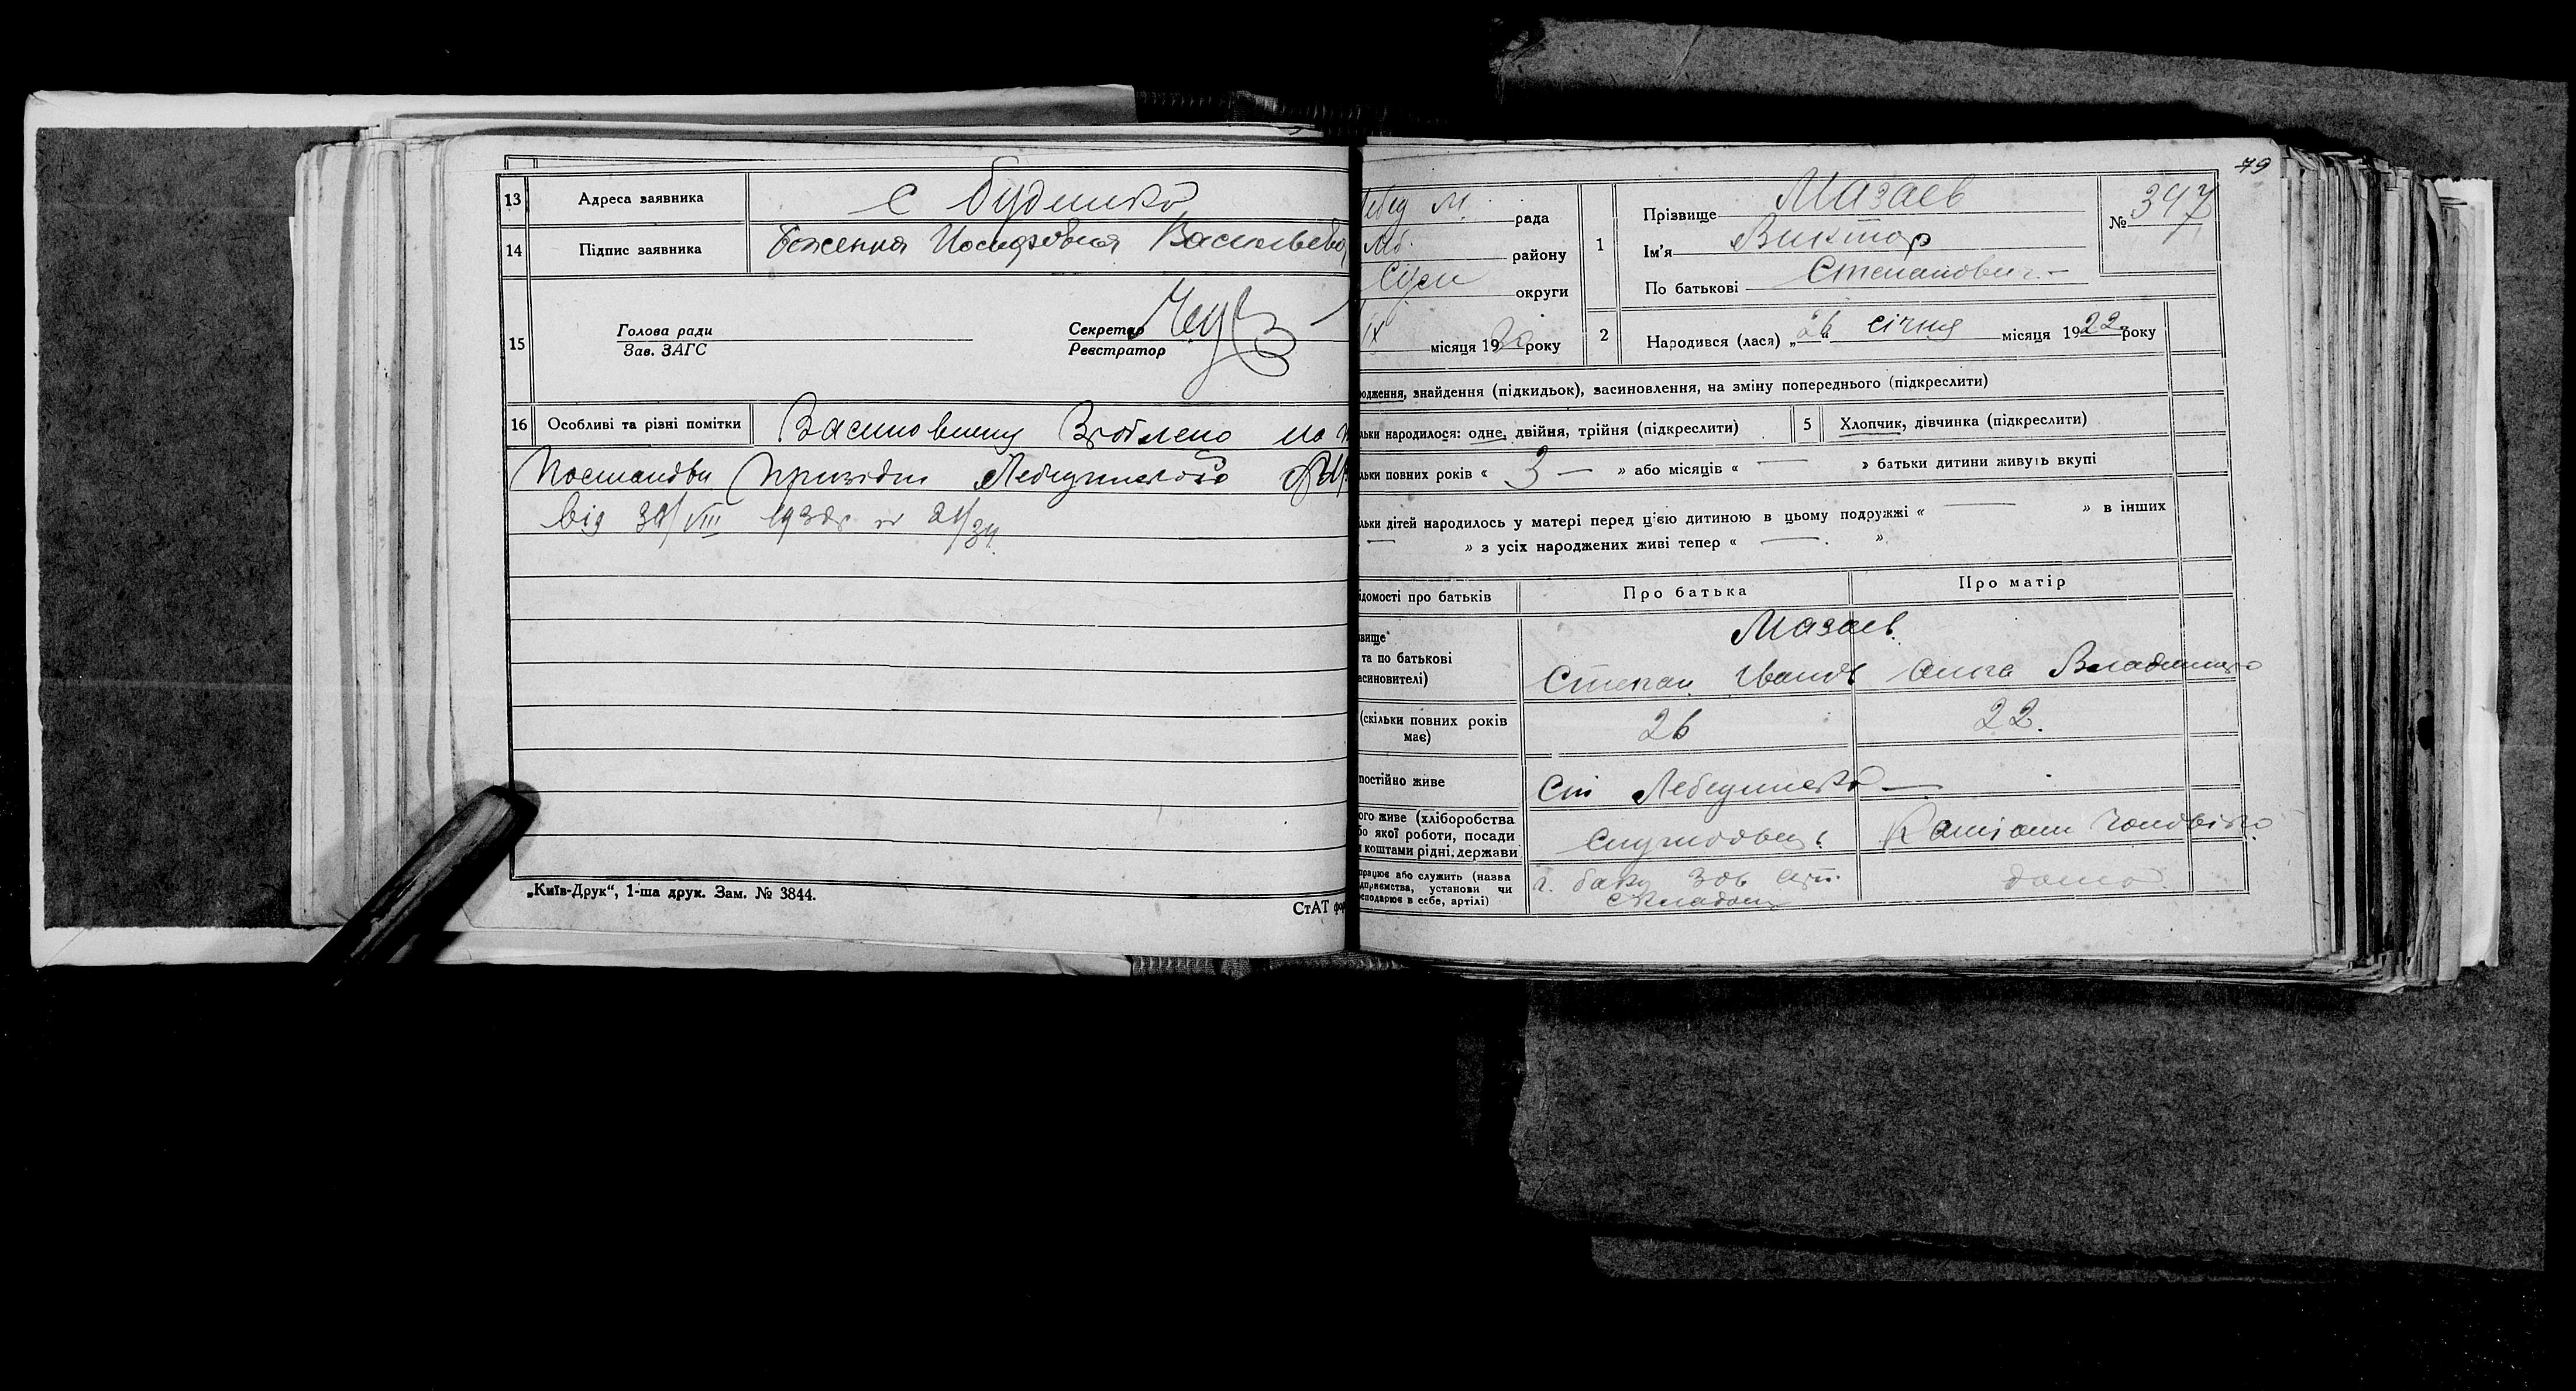 13 Адреса заявника с Будилка
14 Підпис заявника Боженна Иосифовна Васильева
15 Голова ради
Зав. ЗАГС
Секретар
Реєстратор
16 Особливі та різні помітки Васиновлену Зроблено на
Постанови Призідії Лебединського
від VIII 1930р
„Київ-Друк“, 1-ша друк. Зам. № 3844.
СтАТ фор
79
Лебед М. рада
Леб. району
Суми округи
IX місяця 1930 року
1 Прізвище Мазаев
Ім'я Виктор
По батькові Степанович
№ 347
2 Народився (лася) „26“ січня місяця 1922 року
одження, знайдення (підкидьок), васиновлення, на зміну попереднього (підкреслити)
льки народилося: одне, двійня, трійня (підкреслити) 5 Хлопчик, дівчинка (підкреслити)
льки повних років « 3 — » або місяців « — » батьки дитини живуть вкупі
льки дітей народилось у матері перед цією дитиною в цьому подружжі « — » в інших
— » з усіх народжених живі тепер « — . »
ідомості про батьків Про батька Про матір
звище
та по батькові
асиновителі)
Мазаев.
Степан Иванов Анна Владимиро
(скільки повних років має) 26 22.
постійно живе Ст Лебединська —
ого живе (хліборобства
бо якої роботи, посади
и коштами рідні, держави
Службовець. Коштами Чоловіка
працює або служить (назва
дприємства, установи чи
сподарює в себе, артілі)
Складом дома